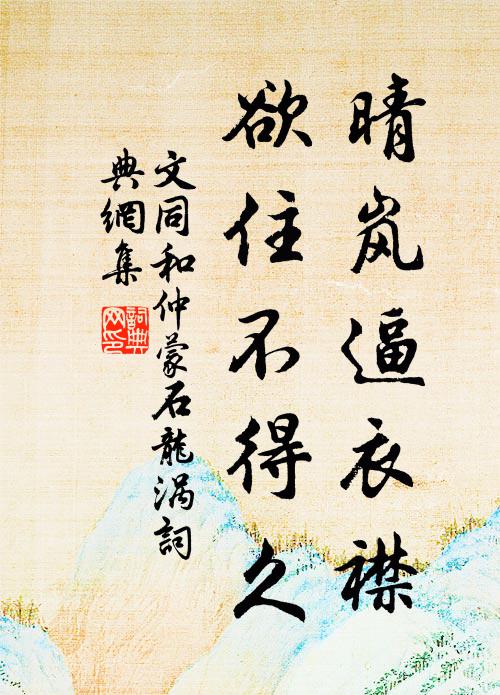 晴岚逼衣襟
欲住不得久
文同和仲蒙石龍涡詞
典網集
詞典
网印